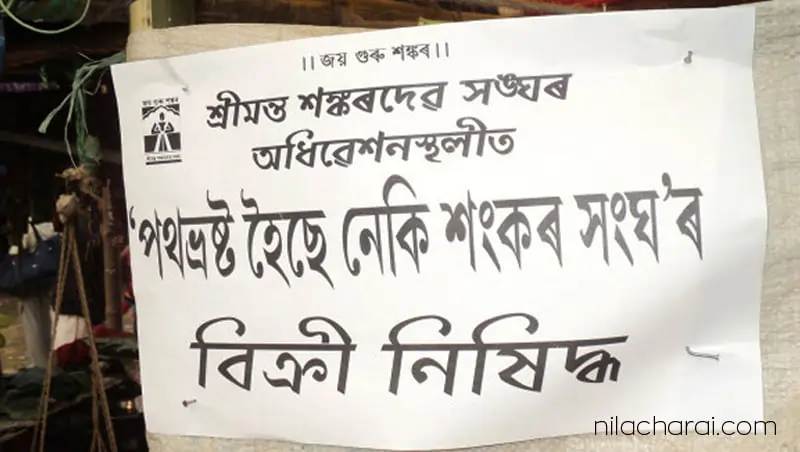 ।। জয় গুৰু শঙ্কৰ।।
শ্ৰীমন্ত শঙ্কৰদেৱ সঙ্ঘৰ
অধিৱেশনস্থলীত
‘পথভ্ৰষ্ট হৈছে নেকি শংকৰ সংঘ’ৰ
বিক্ৰী নিষিদ্ধ
জয় গুৰু শঙ্কৰ
nilacharai.com